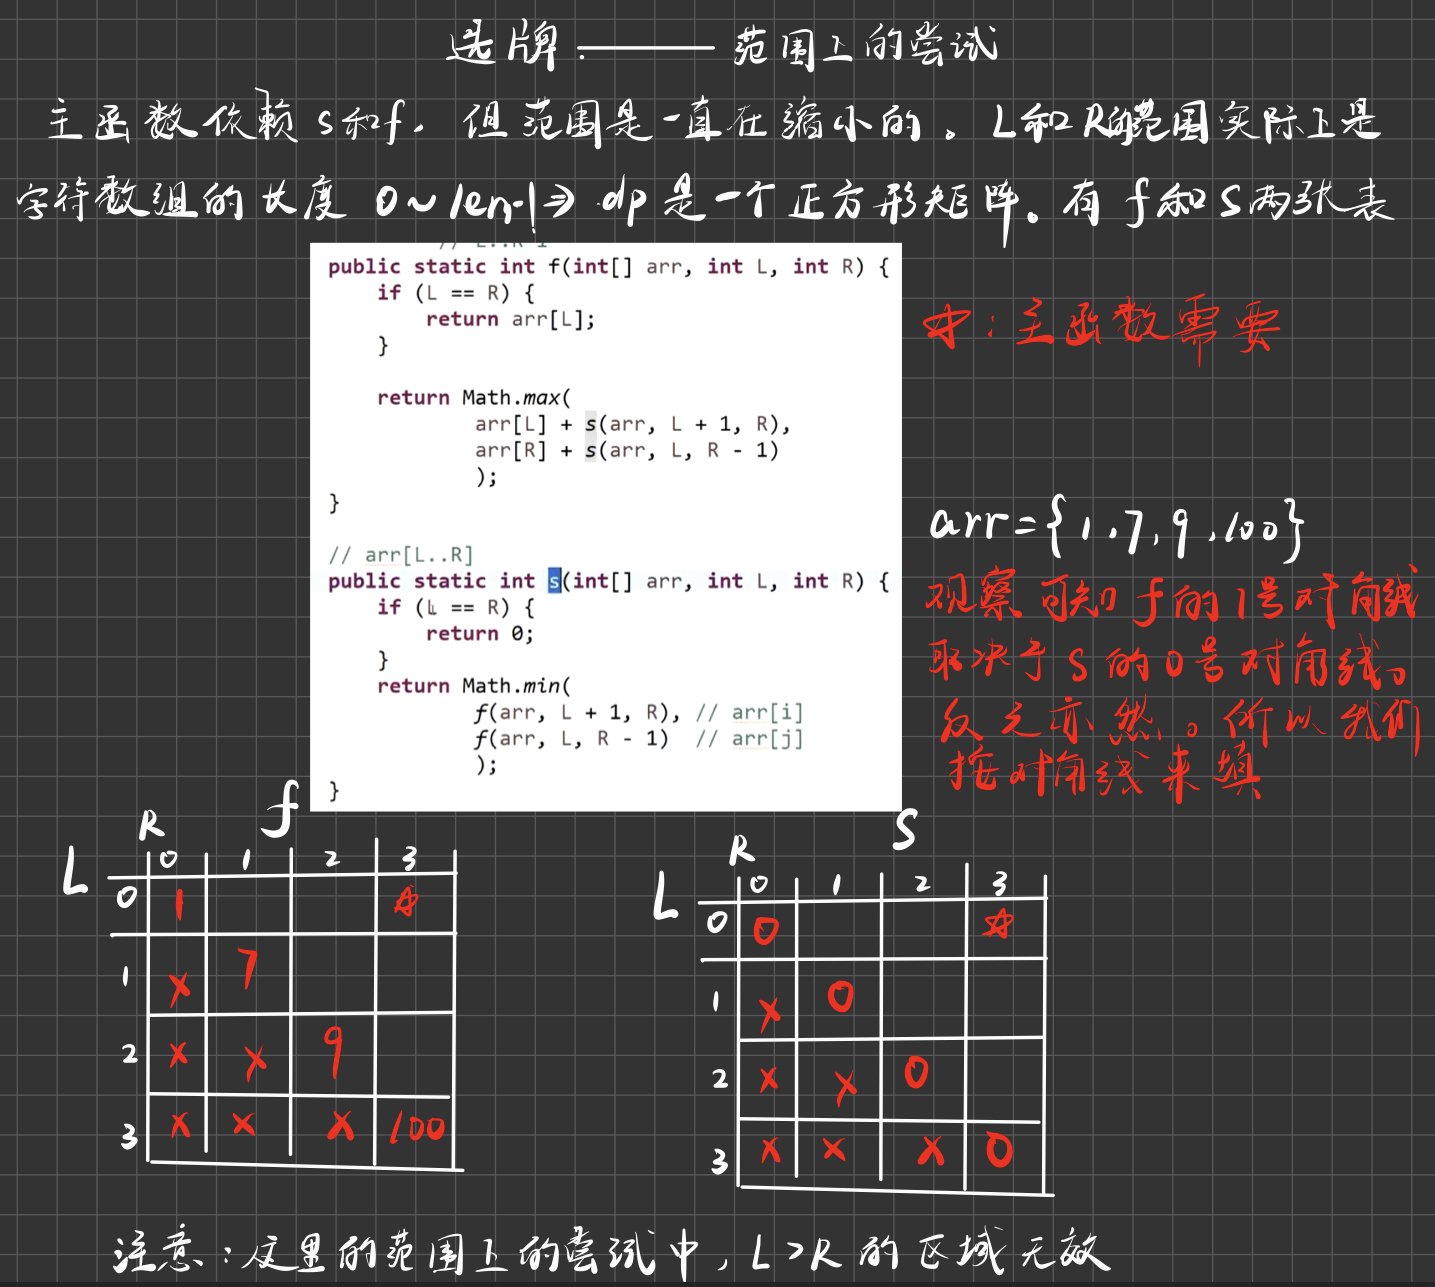 选牌.——范围上的尝试
主函数依赖s和f，但范围是一直在缩小的。L和R的范围实际上是
字符数组的长度 0~len-1⇒dp是一个正方形矩阵。有f和s两张表
public static int f(int[] arr, int L, int R) {
if (L == R) {
return arr[L];
}
return Math.max(
arr[L] + s(arr, L + 1, R),
arr[R] + s(arr, L, R - 1)
);
}
// arr[L..R]
public static int s(int[] arr, int L, int R) {
if (L == R) {
return 0;
}
return Math.min(
f(arr, L + 1, R), // arr[i]
f(arr, L, R - 1) // arr[j]
);
}
☆：主函数需要
arr={1,7,9,100}
观察可知f的1号对角线
取决于S的0号对角线。
反之亦然。所以我们
按对角线来填
f
R
L 0 1 2 3
0 1 ☆
1 x 7
2 x x 9
3 x x x 100
S
R
L 0 1 2 3
0 0 ☆
1 x 0
2 x x 0
3 x x x 0
注意：这里的范围上的尝试中，L>R的区域无效